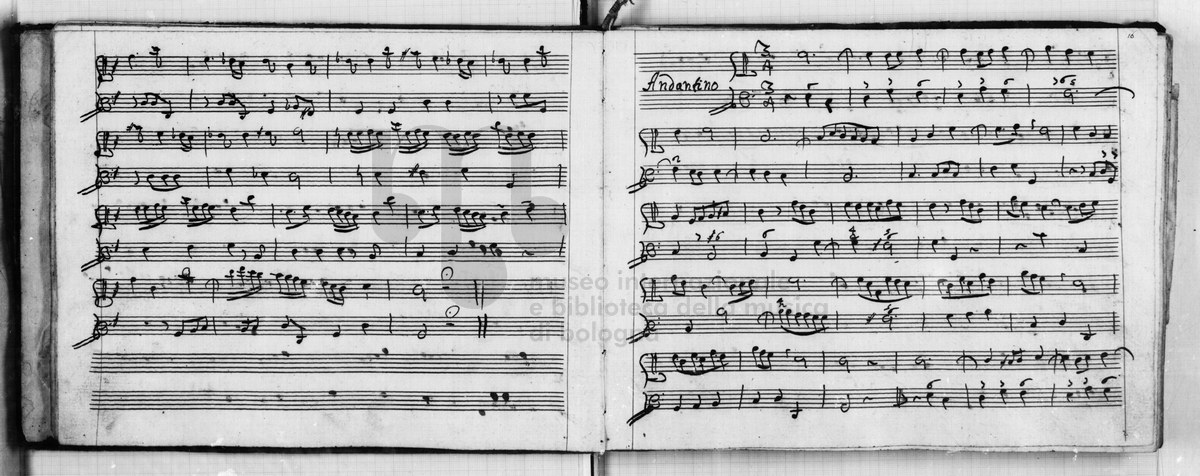 16
Andantino
3
4
3
4
museo internazionale
e biblioteca della musica
di bologna